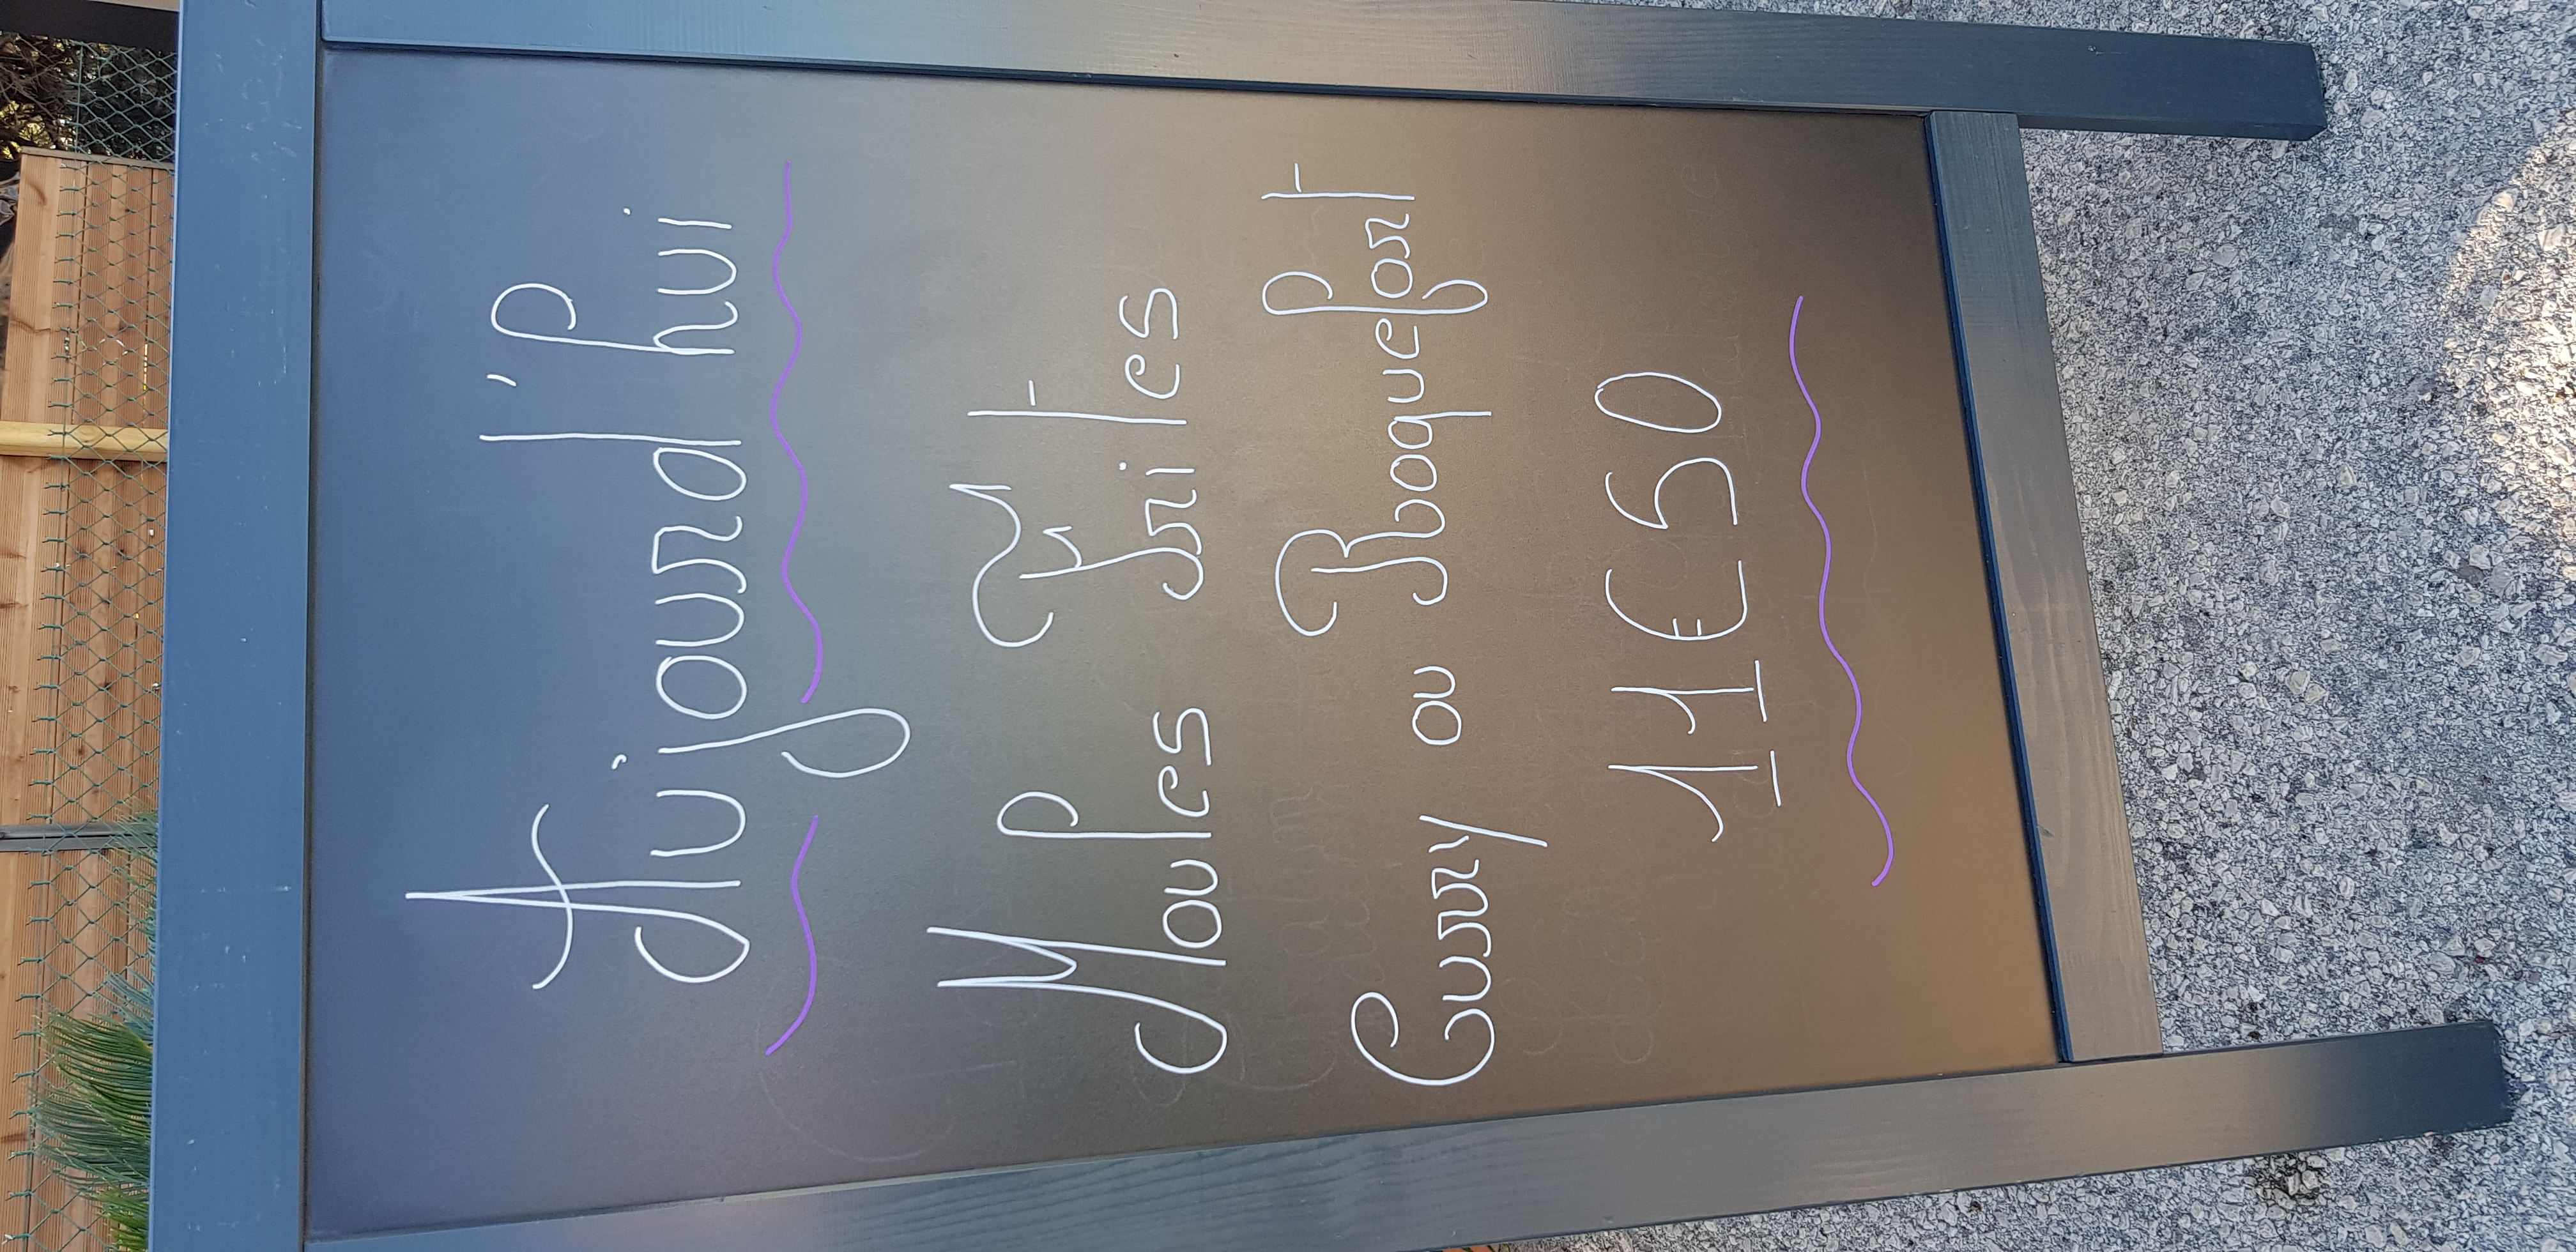 Aujourd'hui
Moules Frites
Curry ou Roquefort
11€50